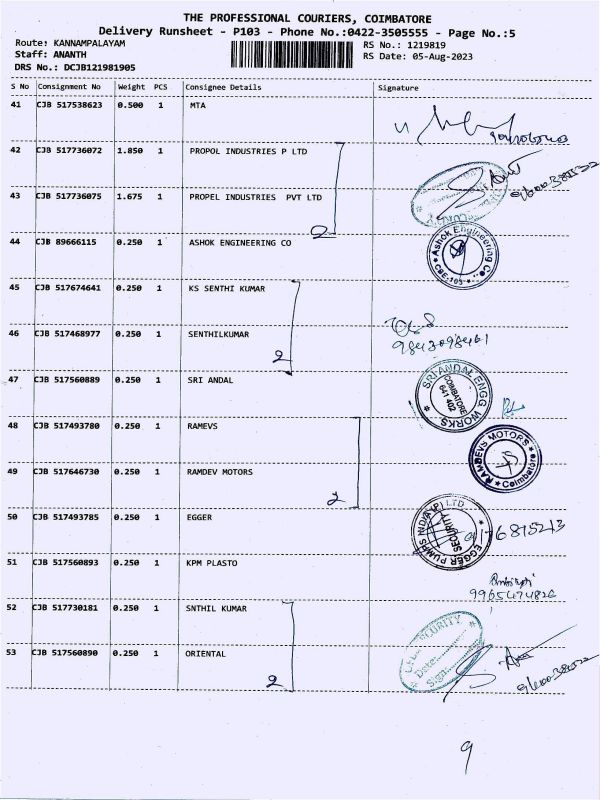 THE PROFESSIONAL COURIERS, COIMBATORE
Delivery Runsheet - P103 - Phone No.:0422-3505555 - Page No.:5
Route: KANNAMPALAYAM
RS No.: 1219819
Staff: ANANTH
RS Date: 05-Aug-2023
DRS No.: DCJB121981905
S No Consignment No Weight PCS Consignee Details Signature
41 CJB 517538623 0.500 1 MTA
42 CJB 517736072 1.850 1 PROPOL INDUSTRIES P LTD
43 CJB 517736075 1.675 1 PROPEL INDUSTRIES PVT LTD
2
44 CJB 89666115 0.250 1 ASHOK ENGINEERING CO
Ashok Engineering Co
CBE-103
45 CJB 517674641 0.250 1 KS SENTHI KUMAR
46 CJB 517468977 0.250 1 SENTHILKUMAR
2
9843098461
47 CJB 517560889 0.250 1 SRI ANDAL
SRI ANDAL ENGG WORKS
COIMBATORE
641 402
48 CJB 517493780 0.250 1 RAMEVS
RAMDEVS MOTORS
Coimbatore
49 CJB 517646730 0.250 1 RAMDEV MOTORS
2
50 CJB 517493785 0.250 1 EGGER
EGGER PUMPS INDIA (P) LTD
SECURITY
51 CJB 517560893 0.250 1 KPM PLASTO
52 CJB 517730181 0.250 1 SNTHIL KUMAR
SECURITY
Date
Sign
53 CJB 517560890 0.250 1 ORIENTAL
2
9